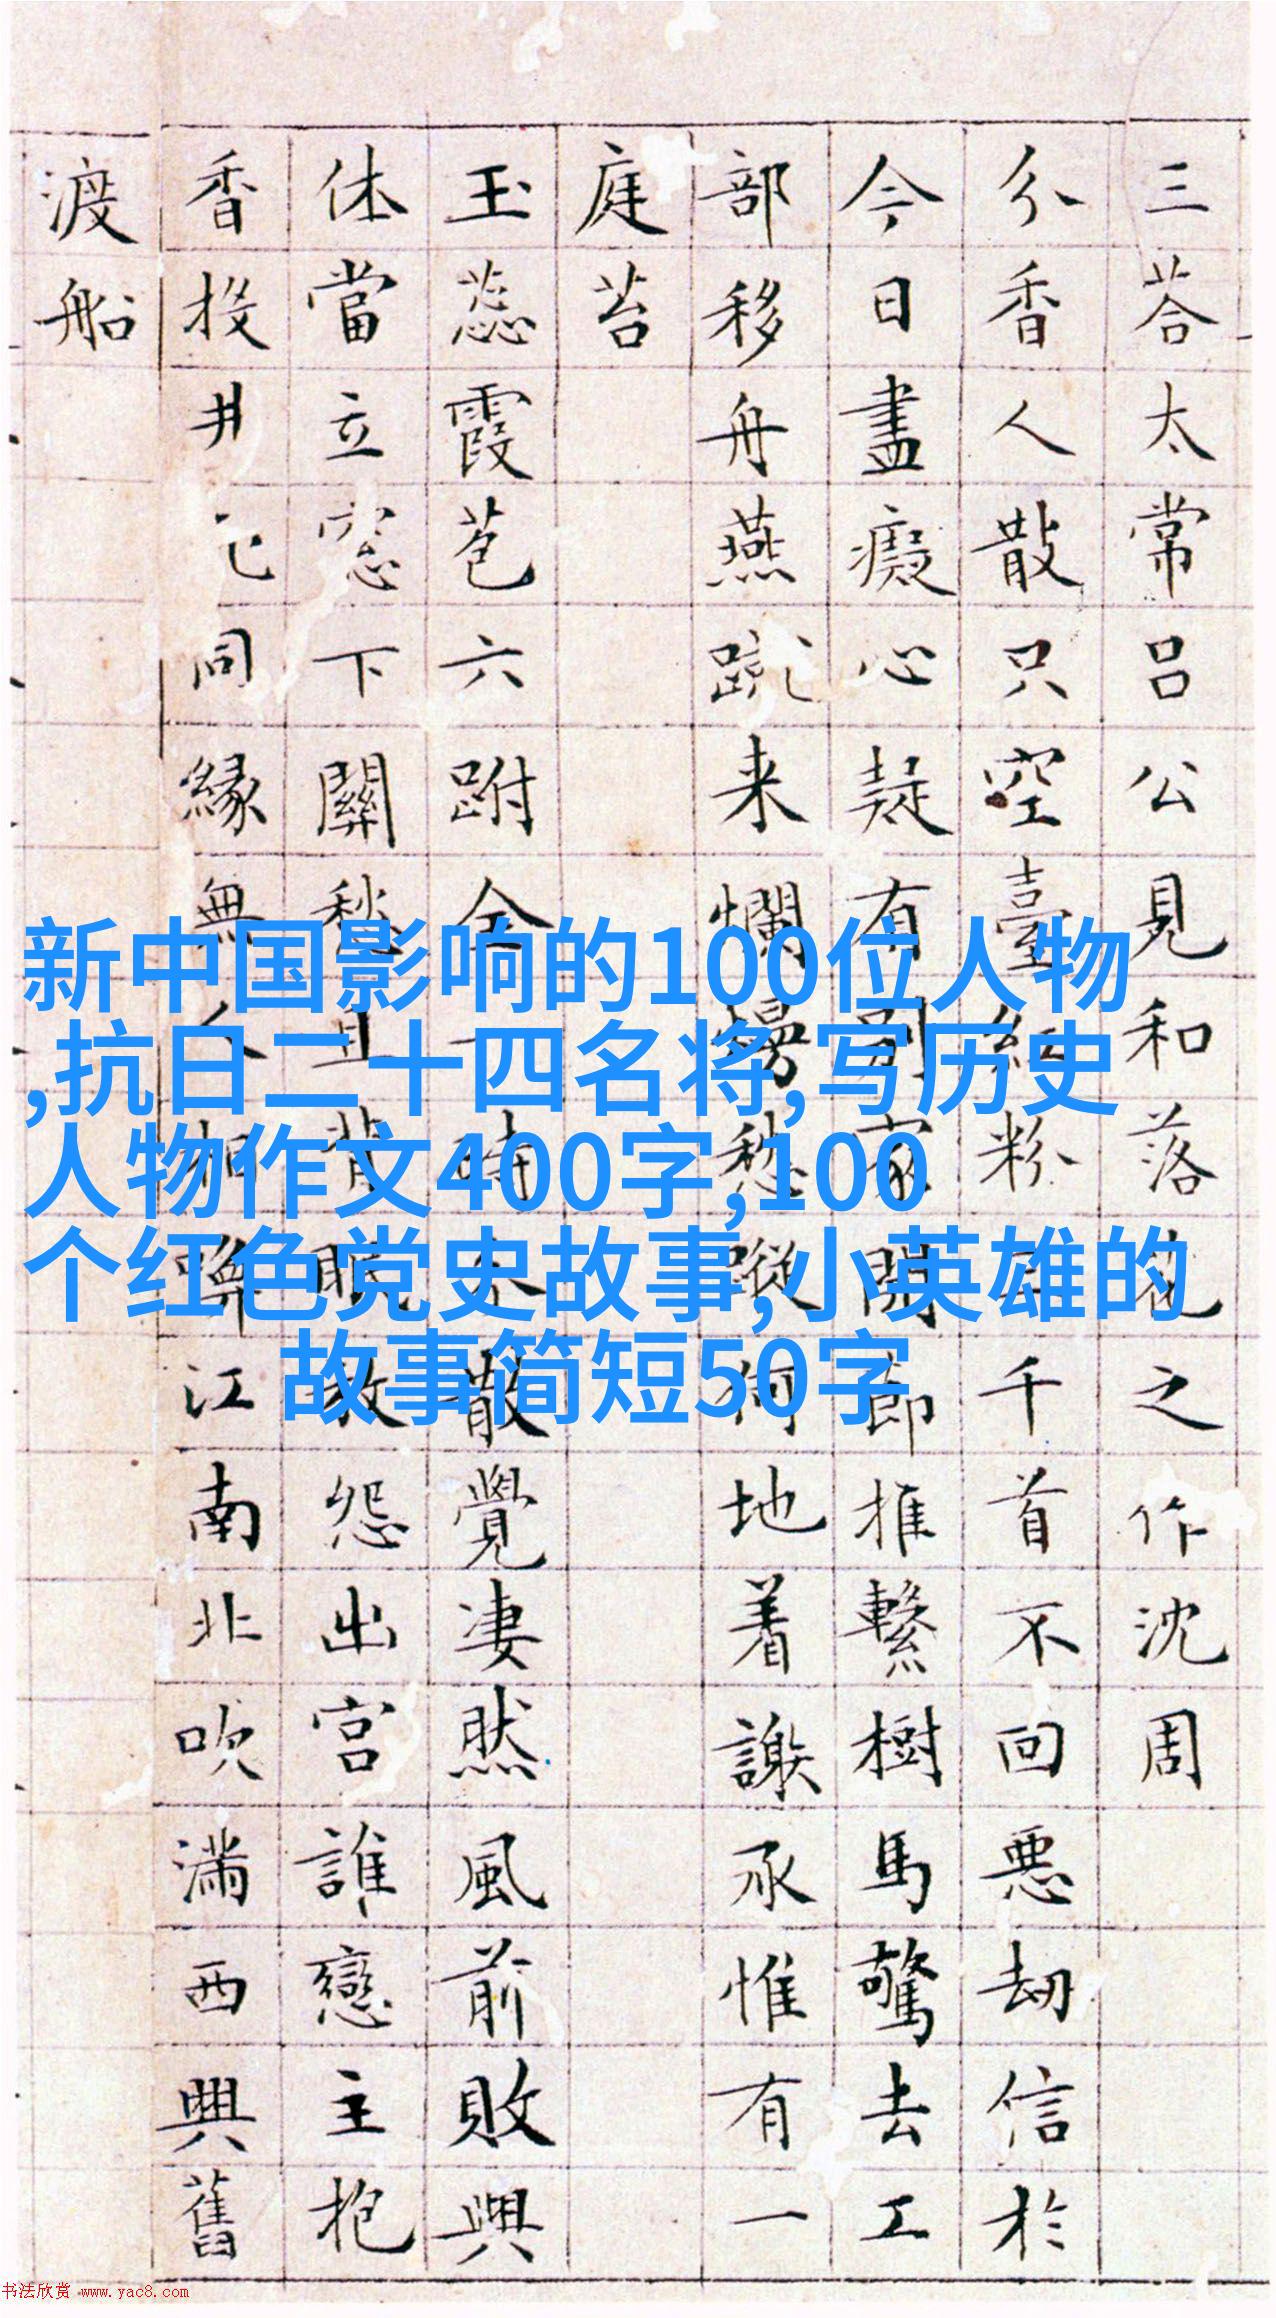 三荅太常吕公見和落花之作沈周
分香人散只空臺紅粉千首不回悪劫信於
今日盡癡心疑有別家開節推繫樹馬驚去工
部移舟燕蹴来爛熳愁蹤何地着謝承惟有一
庭苔
玉蕊霞苞六跗全一時散覺凄然風前敗興
休當立窓下關愁且背眠教怨出宫誰戀主抱
香投井同緣無人相江南北吹滿西興舊
渡船
新中国影响的100位人物
,抗日二十四名将,写历史
人物作文400字,100
个红色党史故事,小英雄的
故事简短50字
书法欣赏 www.yac8.com